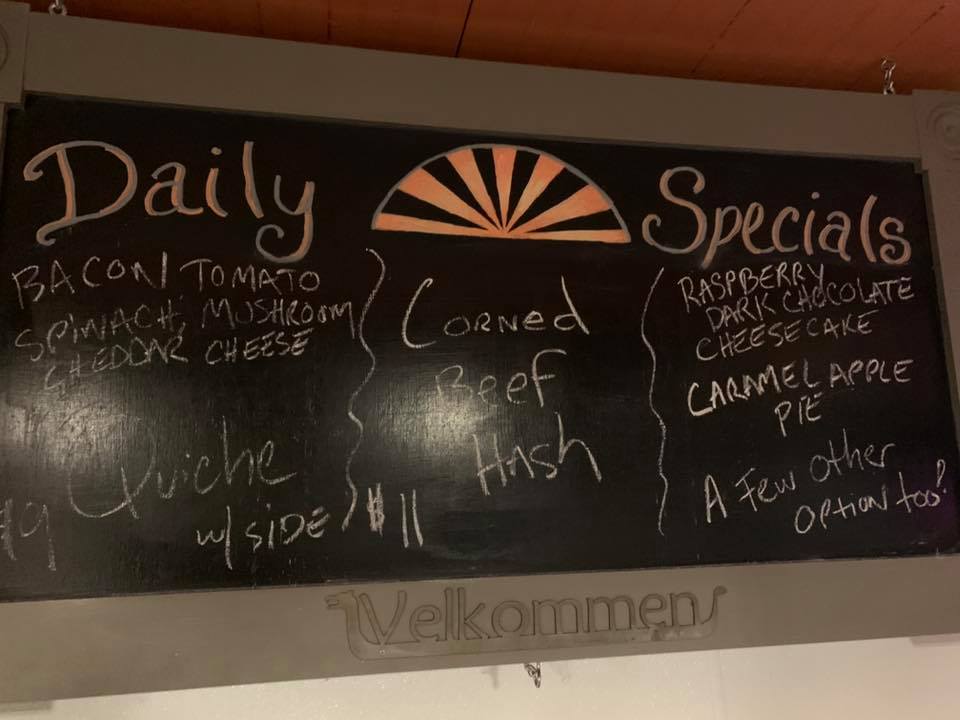 Daily Specials
BACON TOMATO
SPINACH, MUSHROOM
CHEDDAR CHEESE
Quiche
$9 w/ SIDE
Corned
Beef
Hash
$11
RASPBERRY
DARK CHOCOLATE
CHEESECAKE
CARAMEL APPLE
PIE
A Few other
option too!
Velkommen